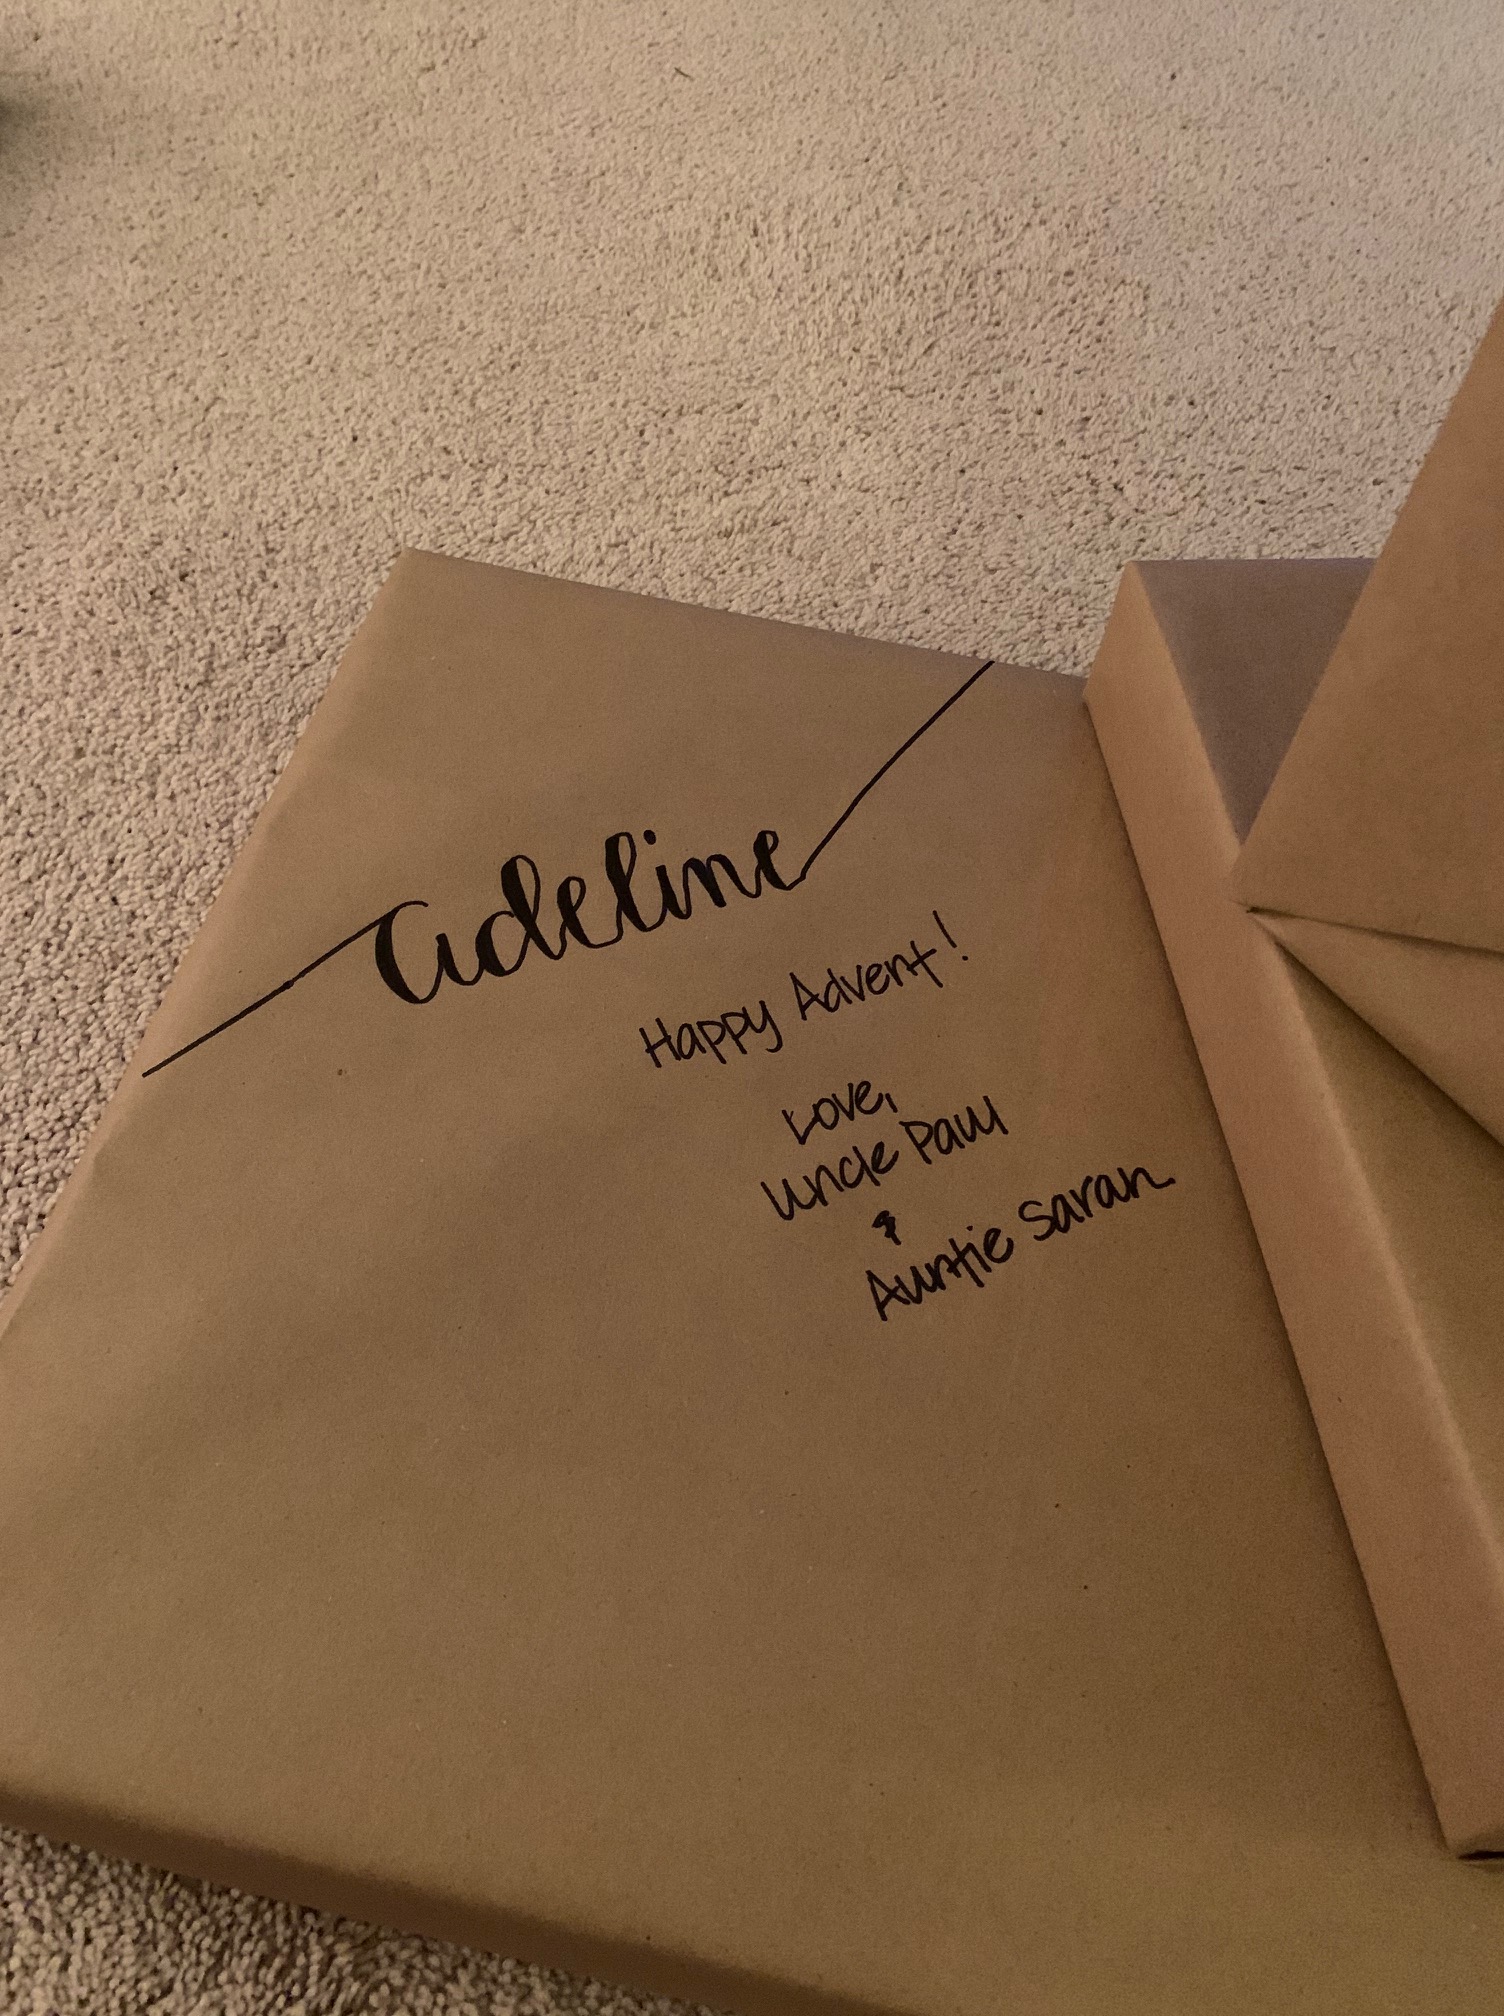 adeline
Happy Advent!
Love,
Uncle Paul
&
Auntie Sarah